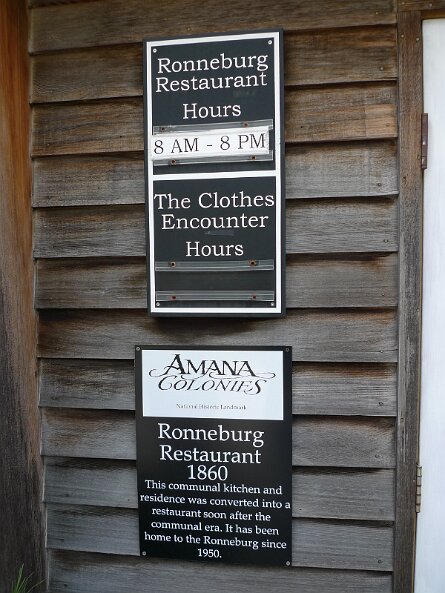 Ronneburg
Restaurant
Hours
8 AM - 8 PM
The Clothes
Encounter
Hours
AMANA
COLONIES
National Historic Landmark
Ronneburg
Restaurant
1860
This communal kitchen and
residence was converted into a
restaurant soon after the
communal era. It has been
home to the Ronneburg since
1950.